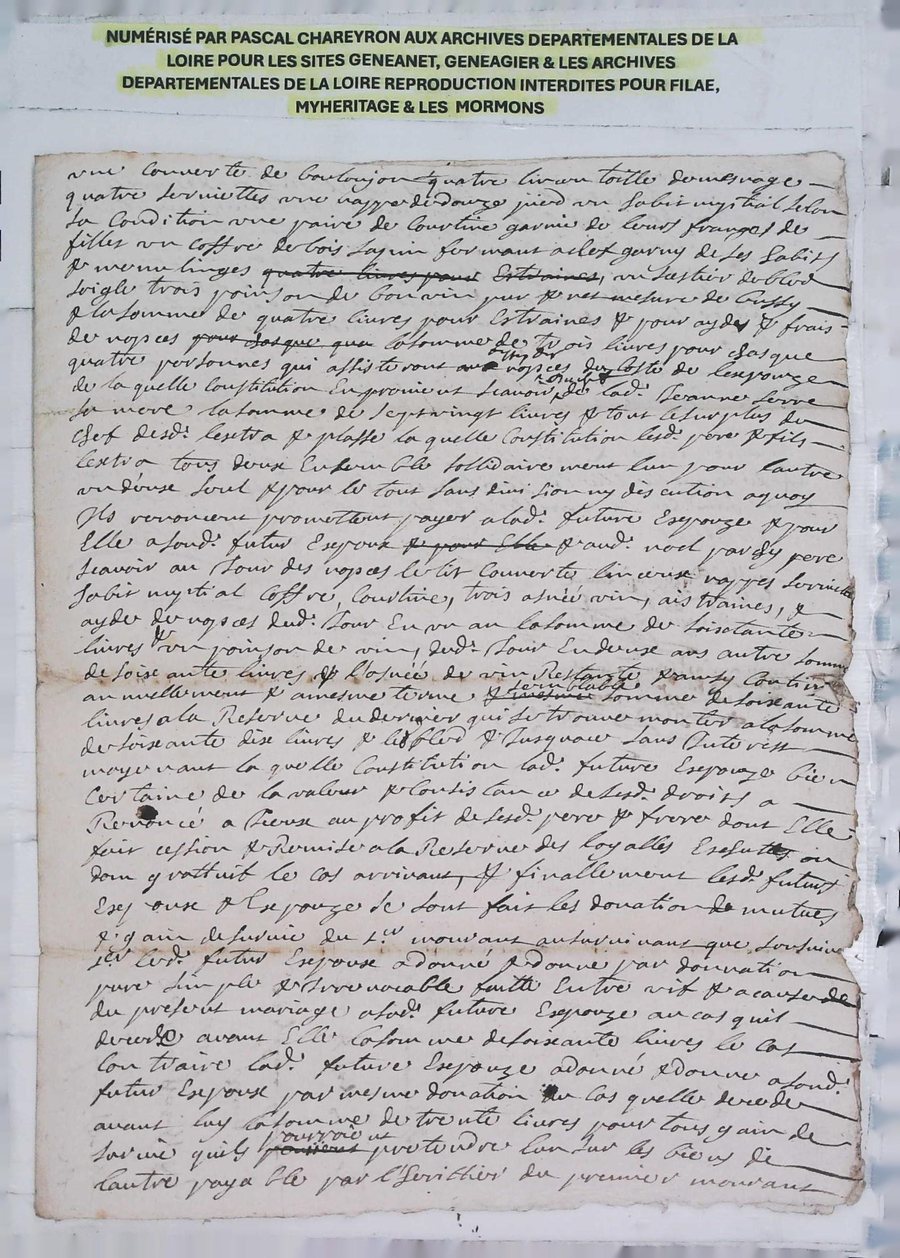 NUMÉRISÉ PAR PASCAL CHAREYRON AUX ARCHIVES DEPARTEMENTALES DE LA
LOIRE POUR LES SITES GENEANET, GENEAGIER & LES ARCHIVES
DEPARTEMENTALES DE LA LOIRE REPRODUCTION INTERDITES POUR FILAE,
MYHERITAGE & LES MORMONS
une couverte de quatre toille de mesnage
quatre serviettes une nappe de douze pied un habit selon
sa condition une paire de courtine garnie de leurs franges de
fillet un coffre de bois sapin fermant a clef garny de ses habits
& menu linges quatre livres pour Estraines, un sestier de bled
soigle trois poinson de bon vin pur & net mesure de bussy
& la somme de quatre livres pour Estraines & pour ayde & frais
de nopces pour chasque la somme de trois livres pour chasque
quatre personnes qui assisteront nopces du costé de lespouze
de la quelle constitution En provient scavoir de lad. Jeanne Serre
sa mere la somme de sept vingt livres & tout le surplus du
chef desd. lextra & plasse la quelle constitution lesd. pere & fils
lextra tous deux Ensemble sollidairement lun pour lautre
un deux seul & pour le tout sans division ny discution a quoy
Ils renoncent promettent payer a lad. future Espouze & pour
Elle a sond. futur Espoux & pour Elle & aud. noel pardy pere
scavoir au Jour des nopces le lit couverte linceux nappes serviette
habit coffre courtine, trois asnée vin, aistraines, &
ayde de nopces dud. Jour En un an la somme de soixante
livres & un poinson de vin, dud. Jour En deux ans autre somme
de soixante livres & l'asnée de vin Restante & ainsy
annuellement & a mesme terme & semblable somme de soixante
livres a la Reserve du dernier qui se trouve monter a la somme
de soixante dix livres & le bled & Jusque a ce sans Interest
moyenant la quelle Constitution lad. future Espouze bien
certaine de la valeur & consistance de sesd. droits a
Renoncé a Iceux au profit de sesd. pere & frere dont Elle
fait cession & Remise a la Reserve des loyalles Escheutes ou
don grattuit le cas arrivant, & finallement lesd. futurs
Espoux & Espouze se sont fait les donation de mutues
& gain de survie du 1er mourant au survivant que sensuive
led. futur Espoux a donné & donne par donnation
pure simple & Irrevocable faitte Entre vif & a cause de
du present mariage a sad. future Espouze au cas quil
decede avant Elle la somme de soixante livres le cas
contraire lad. future Espouze a donné & donne a sond.
futur Espoux par mesme donation au cas quelle decede
avant luy la somme de trente livres pour tous gain de
survie quils pourroient pretendre lun sur les biens de
lautre payable par l'heritier du premier mourant